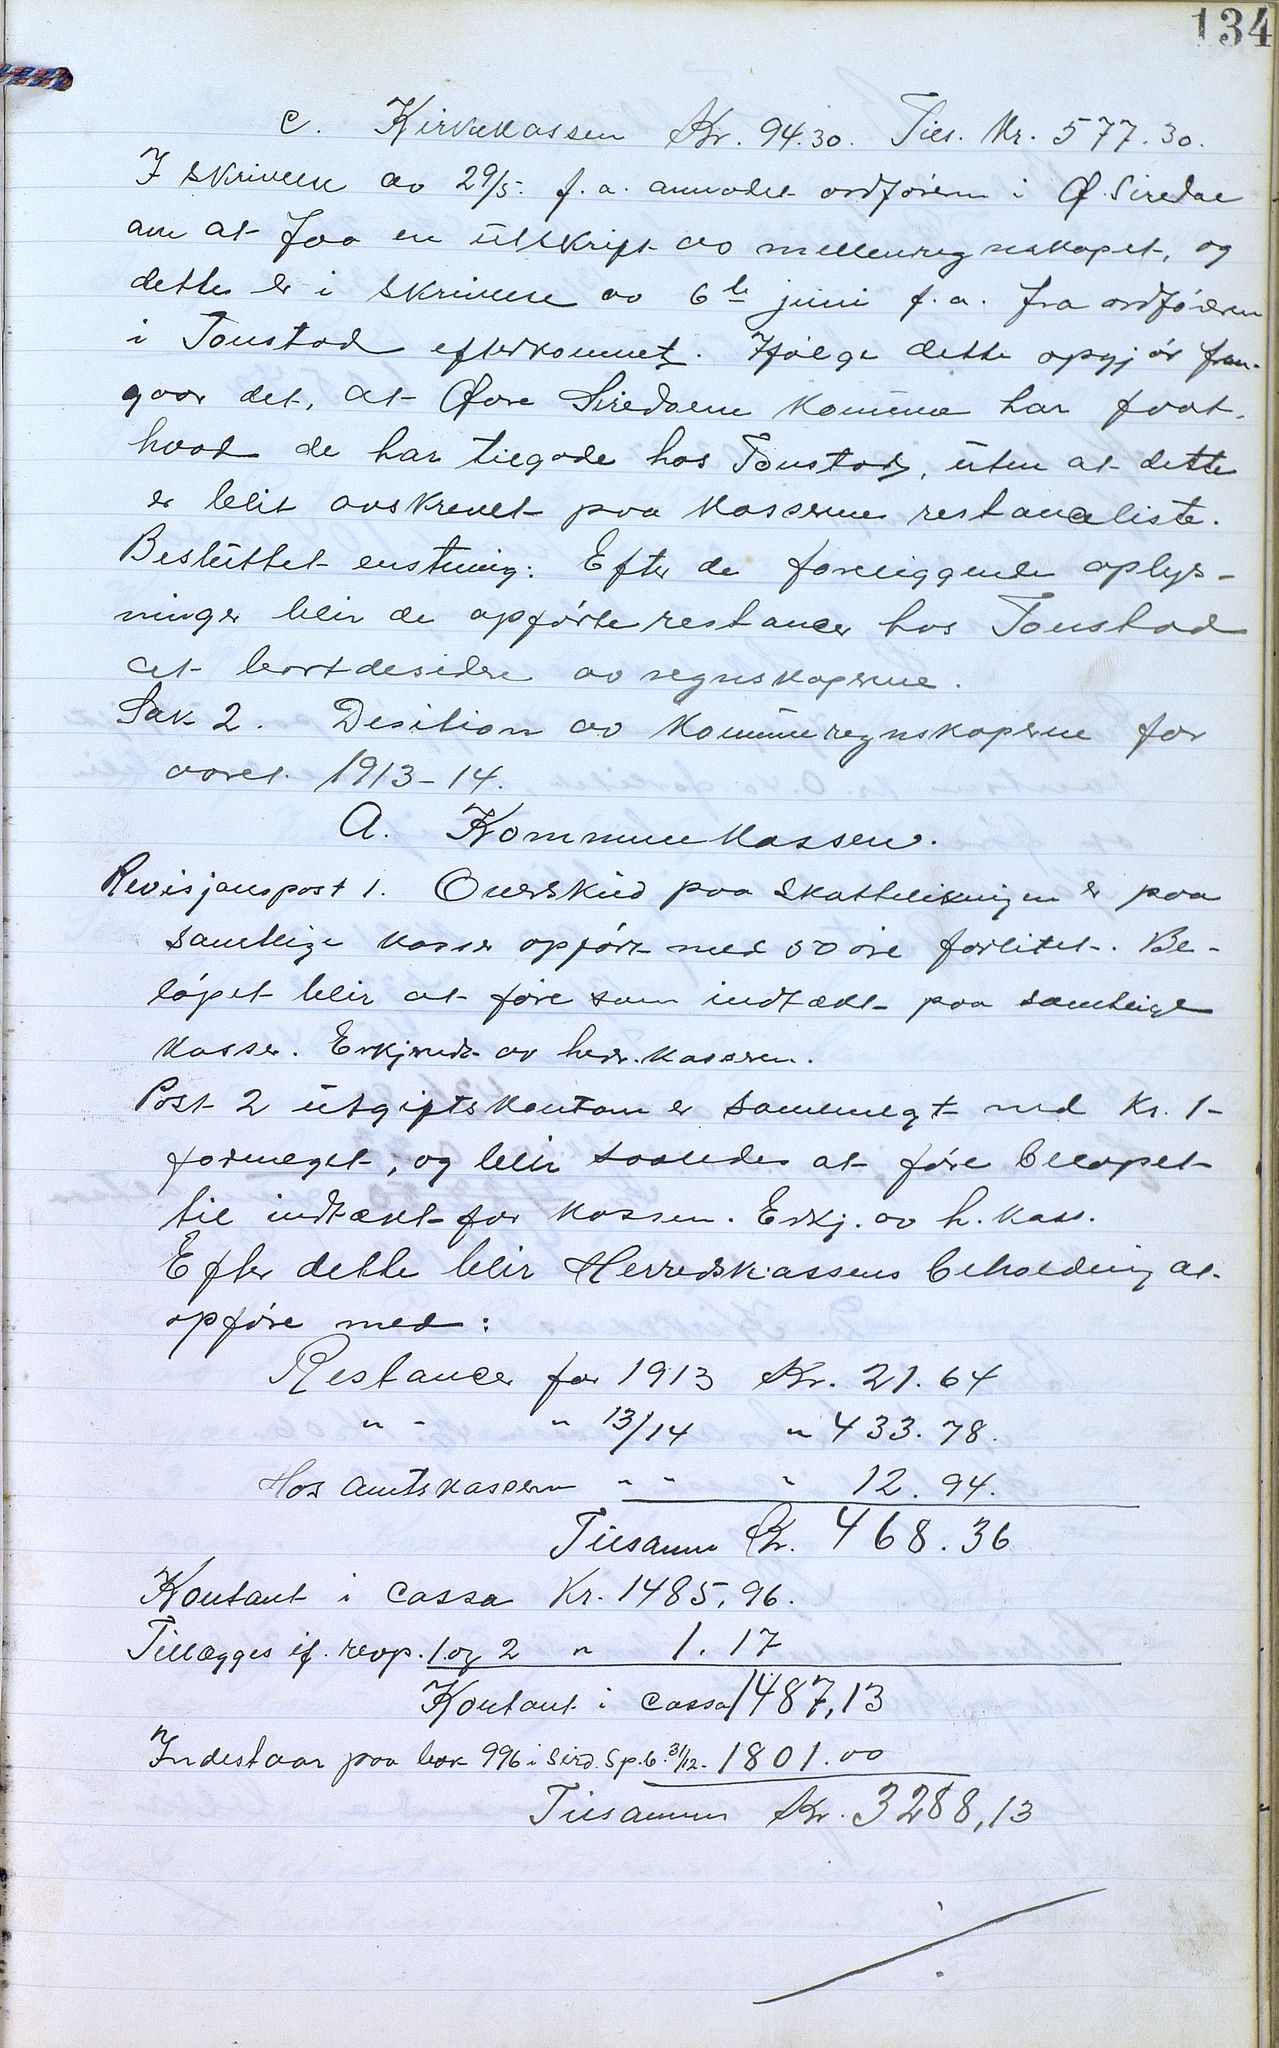 134
c. Kirkekassen Kr. 94.30. Tils. Kr. 577.30.
I skrivelse av 29/5. f. a. anmodet ordføren i Ø. Siredal
om at faa en utskrift av mellemregnskapet, og
dette er i skrivelse av 6te juni f. a. fra ordføreren
i Tonstad efterkommet. Ifølge dette opgjør frem-
gaar det, at Øvre Siredalens komune har faat
hvad de har tilgode hos Tonstad, uten at dette
er blit avskrevet paa kasserne restanceliste.
Besluttet enstemig: Efter de foreliggende oplys-
ninger blir de opførte restancer hos Tonstad
at bortdesidere av regnskaperne.
Sak 2. Desition av komuneregnskaperne for
aaret 1913-14.
A. Kommunekassen.
Revisjonspost 1. Overskud paa skatteligningen er paa
samtlige kasser opført med 50 øre forlitet. Be-
løpet blir at føre som indtækt paa samtlige
kasser. Erkjendt av herr. kasseren.
Post 2 utgiftskontoen er sammenlagt med Kr. 1-
formeget, og blir saaledes at føre beløpet
til indtækt for kassen. Erkj. av h. kass.
Efter dette blir Herredskassens beholdning at
opføre med:
Restancer for 1913 Kr. 21.64
" - " 13/14 " 433.78.
Hos amtskasseren " " " 12.94.
Tilsamen Kr. 468.36
Kontant i cassa Kr. 1485,96.
Tillægges if. revp. 1 og 2 " 1.17
Kontant i cassa 1487,13
Indestaar paa bok 996 i Sird. Sp.b. 31/12. 1801.00
Tilsamen Kr. 3288,13